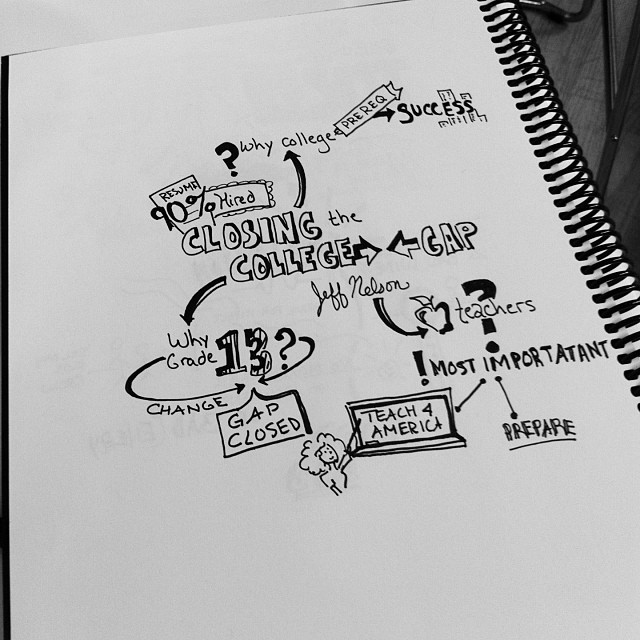 PREREQ
SUCCESS
? Why college
RESUMÉ
90% Hired
CLOSING the
COLLEGE GAP
Jeff Nelson
? teachers
Why
Grade 13?
! MOST IMPORTATANT
CHANGE
GAP
CLOSED
TEACH 4
AMERICA
PREPARE